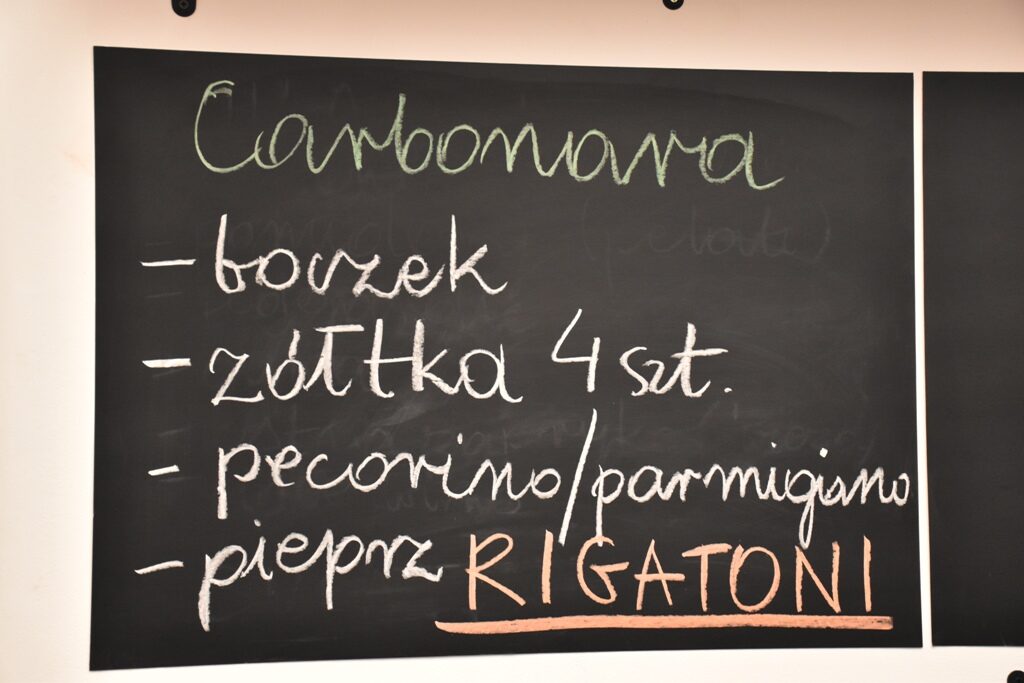 Carbonara
- boczek
- żółtka 4 szt.
- pecorino/parmigiano
- pieprz RIGATONI